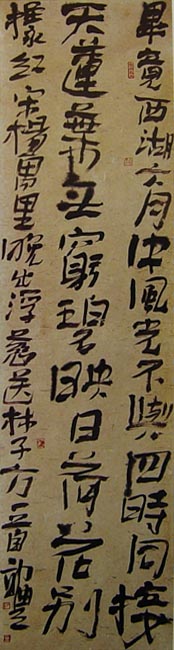 畢竟西湖六月中風光不與四時同接
天蓮葉無窮碧映日荷花別
樣紅宋楊萬里曉出淨慈送林子方一首